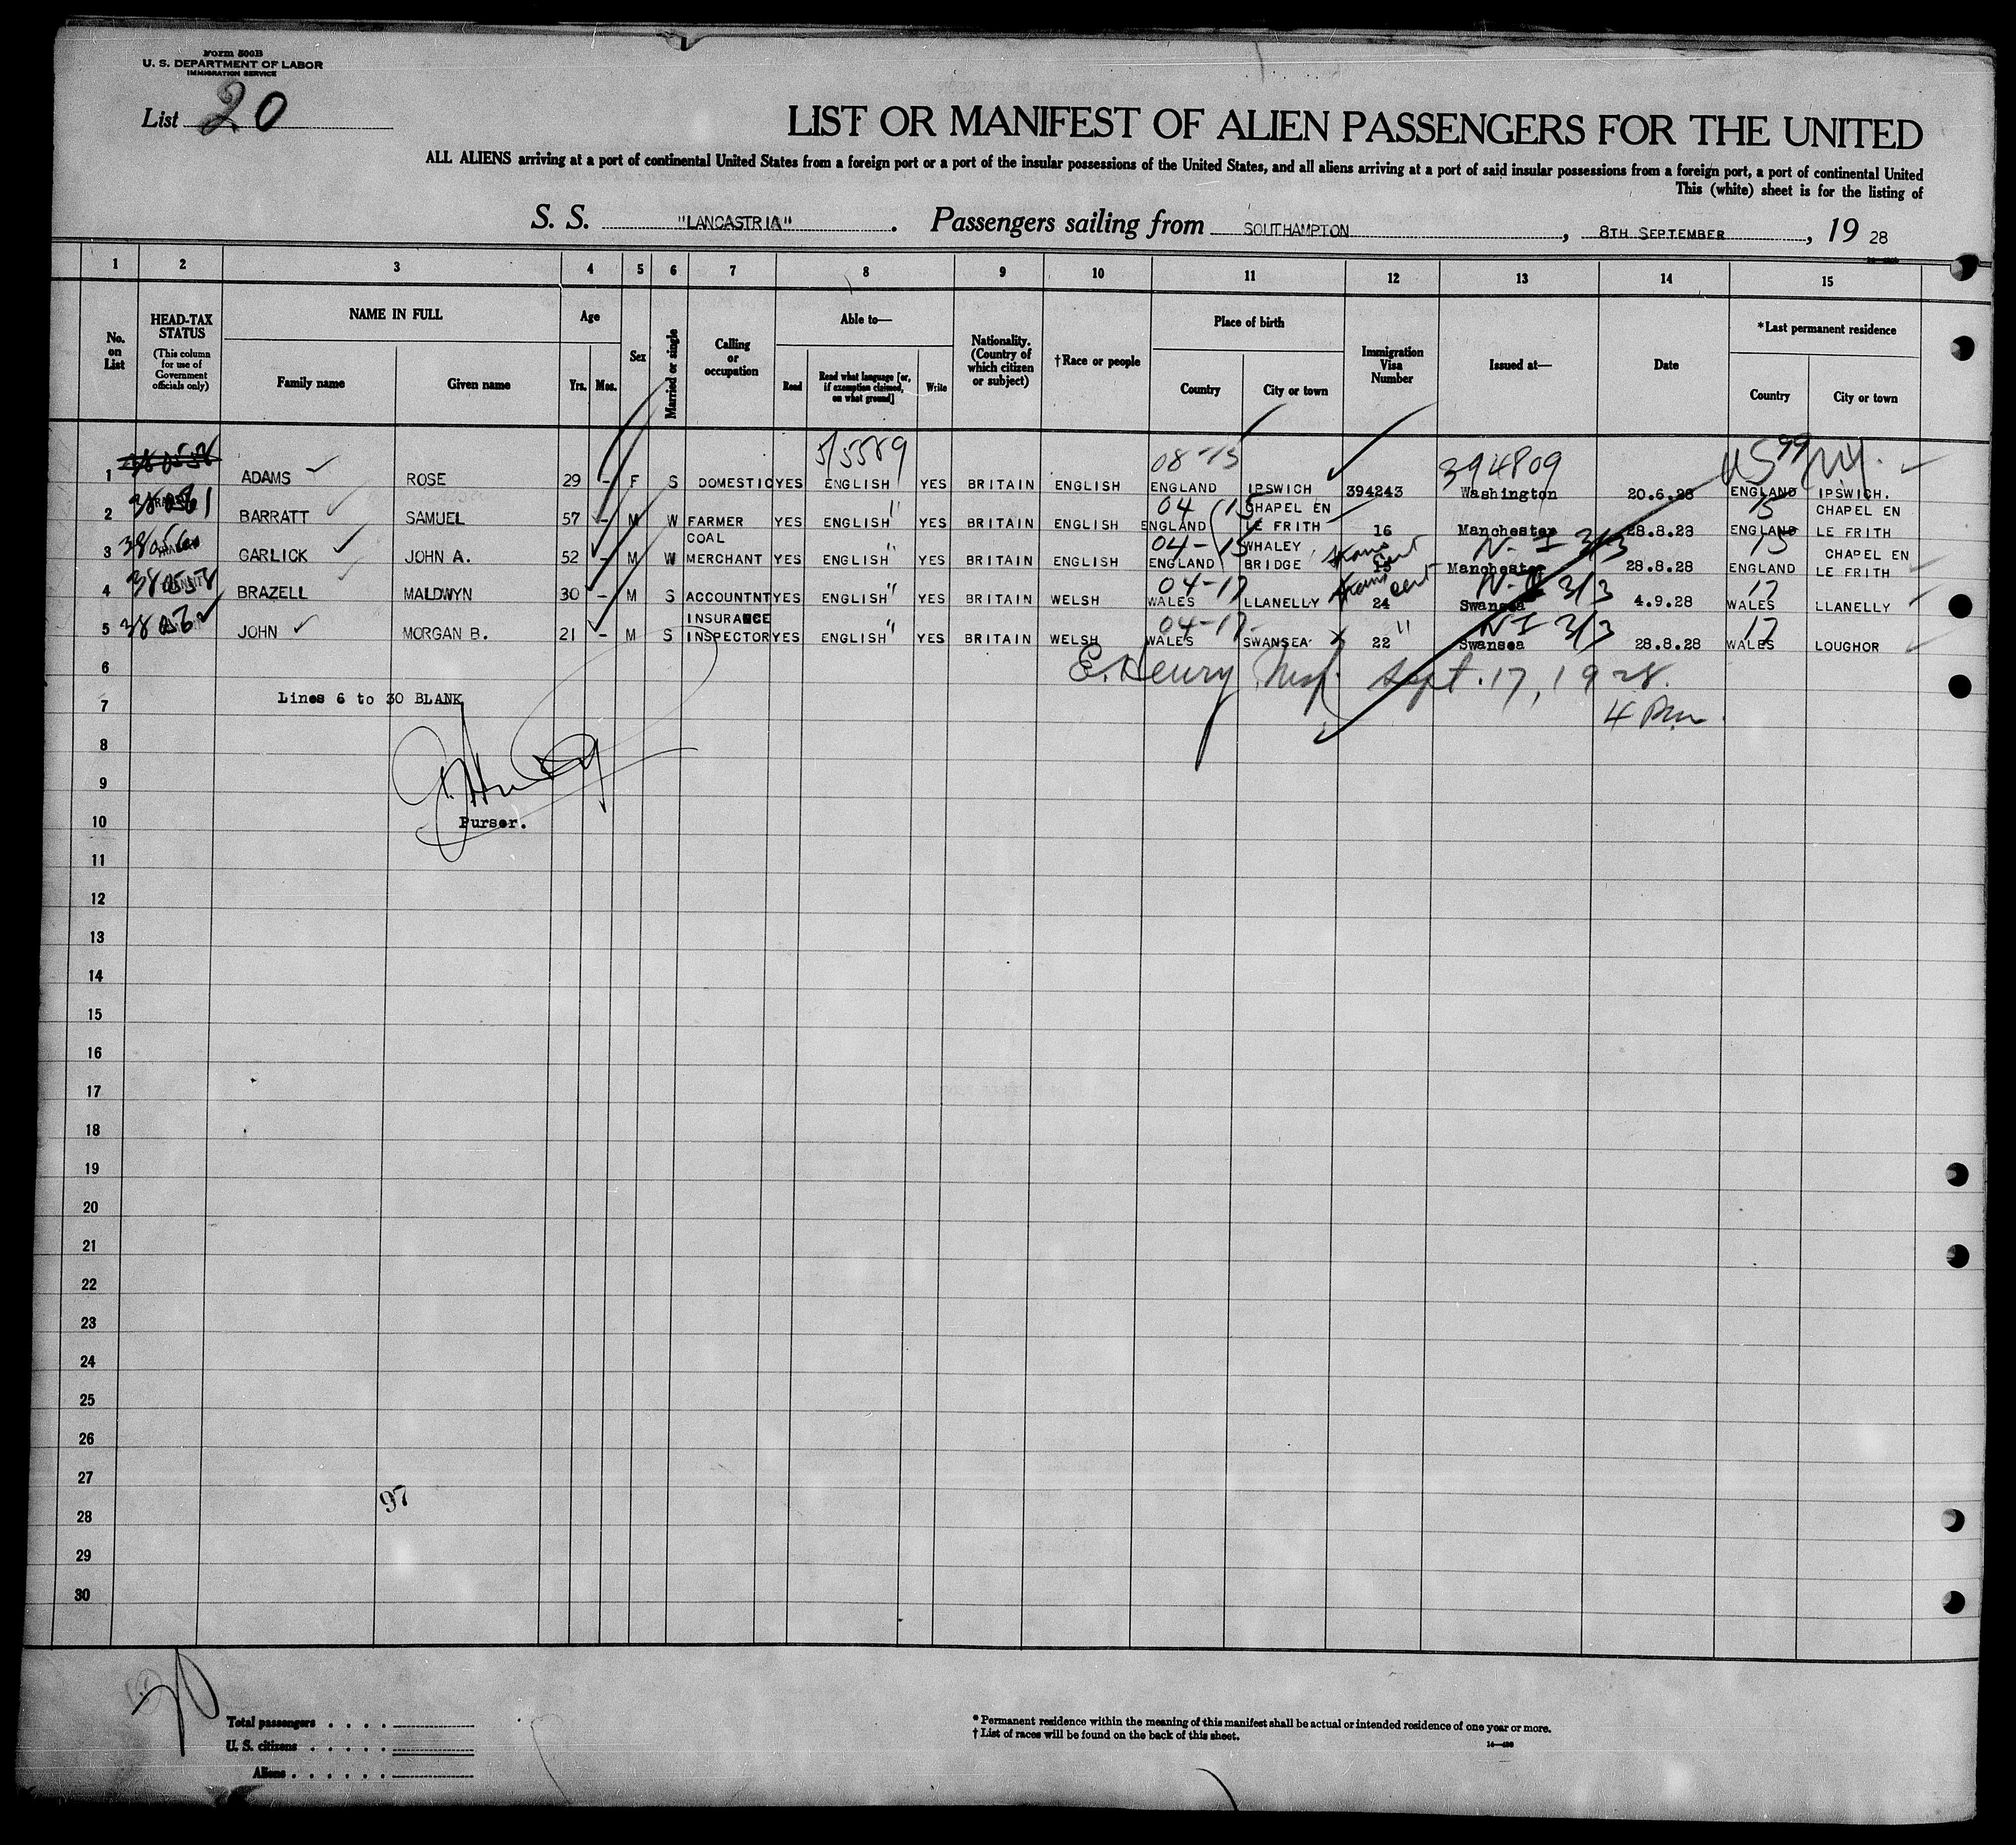 Form 500B
U. S. DEPARTMENT OF LABOR
IMMIGRATION SERVICE
List 20
LIST OR MANIFEST OF ALIEN PASSENGERS FOR THE UNITED
ALL ALIENS arriving at a port of continental United States from a foreign port or a port of the insular possessions of the United States, and all aliens arriving at a port of said insular possessions from a foreign port, a port of continental United
This (white) sheet is for the listing of
S. S. "LANCASTRIA". Passengers sailing from SOUTHAMPTON, 8TH SEPTEMBER, 19 28
1 2 3 4 5 6 7 8 9 10 11 12 13 14 15
No. on List
HEAD-TAX STATUS
(This column for use of Government officials only)
NAME IN FULL
Family name Given name
Age
Yrs. Mos.
Sex
Married or single
Calling or occupation
Able to—
Read
Read what language [or, if exemption claimed, on what ground]
Write
Nationality. (Country of which citizen or subject)
†Race or people
Place of birth
Country City or town
Immigration Visa Number
Issued at—
Date
*Last permanent residence
Country City or town
5/5589 08-15 394809 US 99 NY.
1 ADAMS ROSE 29 - F S DOMESTIC YES ENGLISH YES BRITAIN ENGLISH ENGLAND IPSWICH 394243 Washington 20.6.28 ENGLAND IPSWICH.
04 15 15
2 BARRATT SAMUEL 57 - M W FARMER YES ENGLISH " YES BRITAIN ENGLISH ENGLAND CHAPEL EN LE FRITH 16 Manchester 28.8.28 ENGLAND CHAPEL EN LE FRITH
04-15 N-I 3/3 15
3 GARLICK JOHN A. 52 - M W COAL MERCHANT YES ENGLISH " YES BRITAIN ENGLISH ENGLAND WHALEY BRIDGE 15 Manchester 28.8.28 ENGLAND CHAPEL EN LE FRITH
04-17 3/3 17
4 BRAZELL MALDWYN 30 - M S ACCOUNTNT YES ENGLISH " YES BRITAIN WELSH WALES LLANELLY 24 Swansea 4.9.28 WALES LLANELLY
04-17 " N-I 3/3 17
5 JOHN MORGAN B. 21 - M S INSURANCE INSPECTOR YES ENGLISH " YES BRITAIN WELSH WALES SWANSEA X 22 Swansea 28.8.28 WALES LOUGHOR
6 E. Henry Insp. Sept. 17, 1928.
Lines 6 to 30 BLANK
7 4 Pm.
8
9
10 Purser.
11
12
13
14
15
16
17
18
19
20
21
22
23
24
25
26
27
97
28
29
30
20
Total passengers
U. S. citizens
Aliens
* Permanent residence within the meaning of this manifest shall be actual or intended residence of one year or more.
† List of races will be found on the back of this sheet.